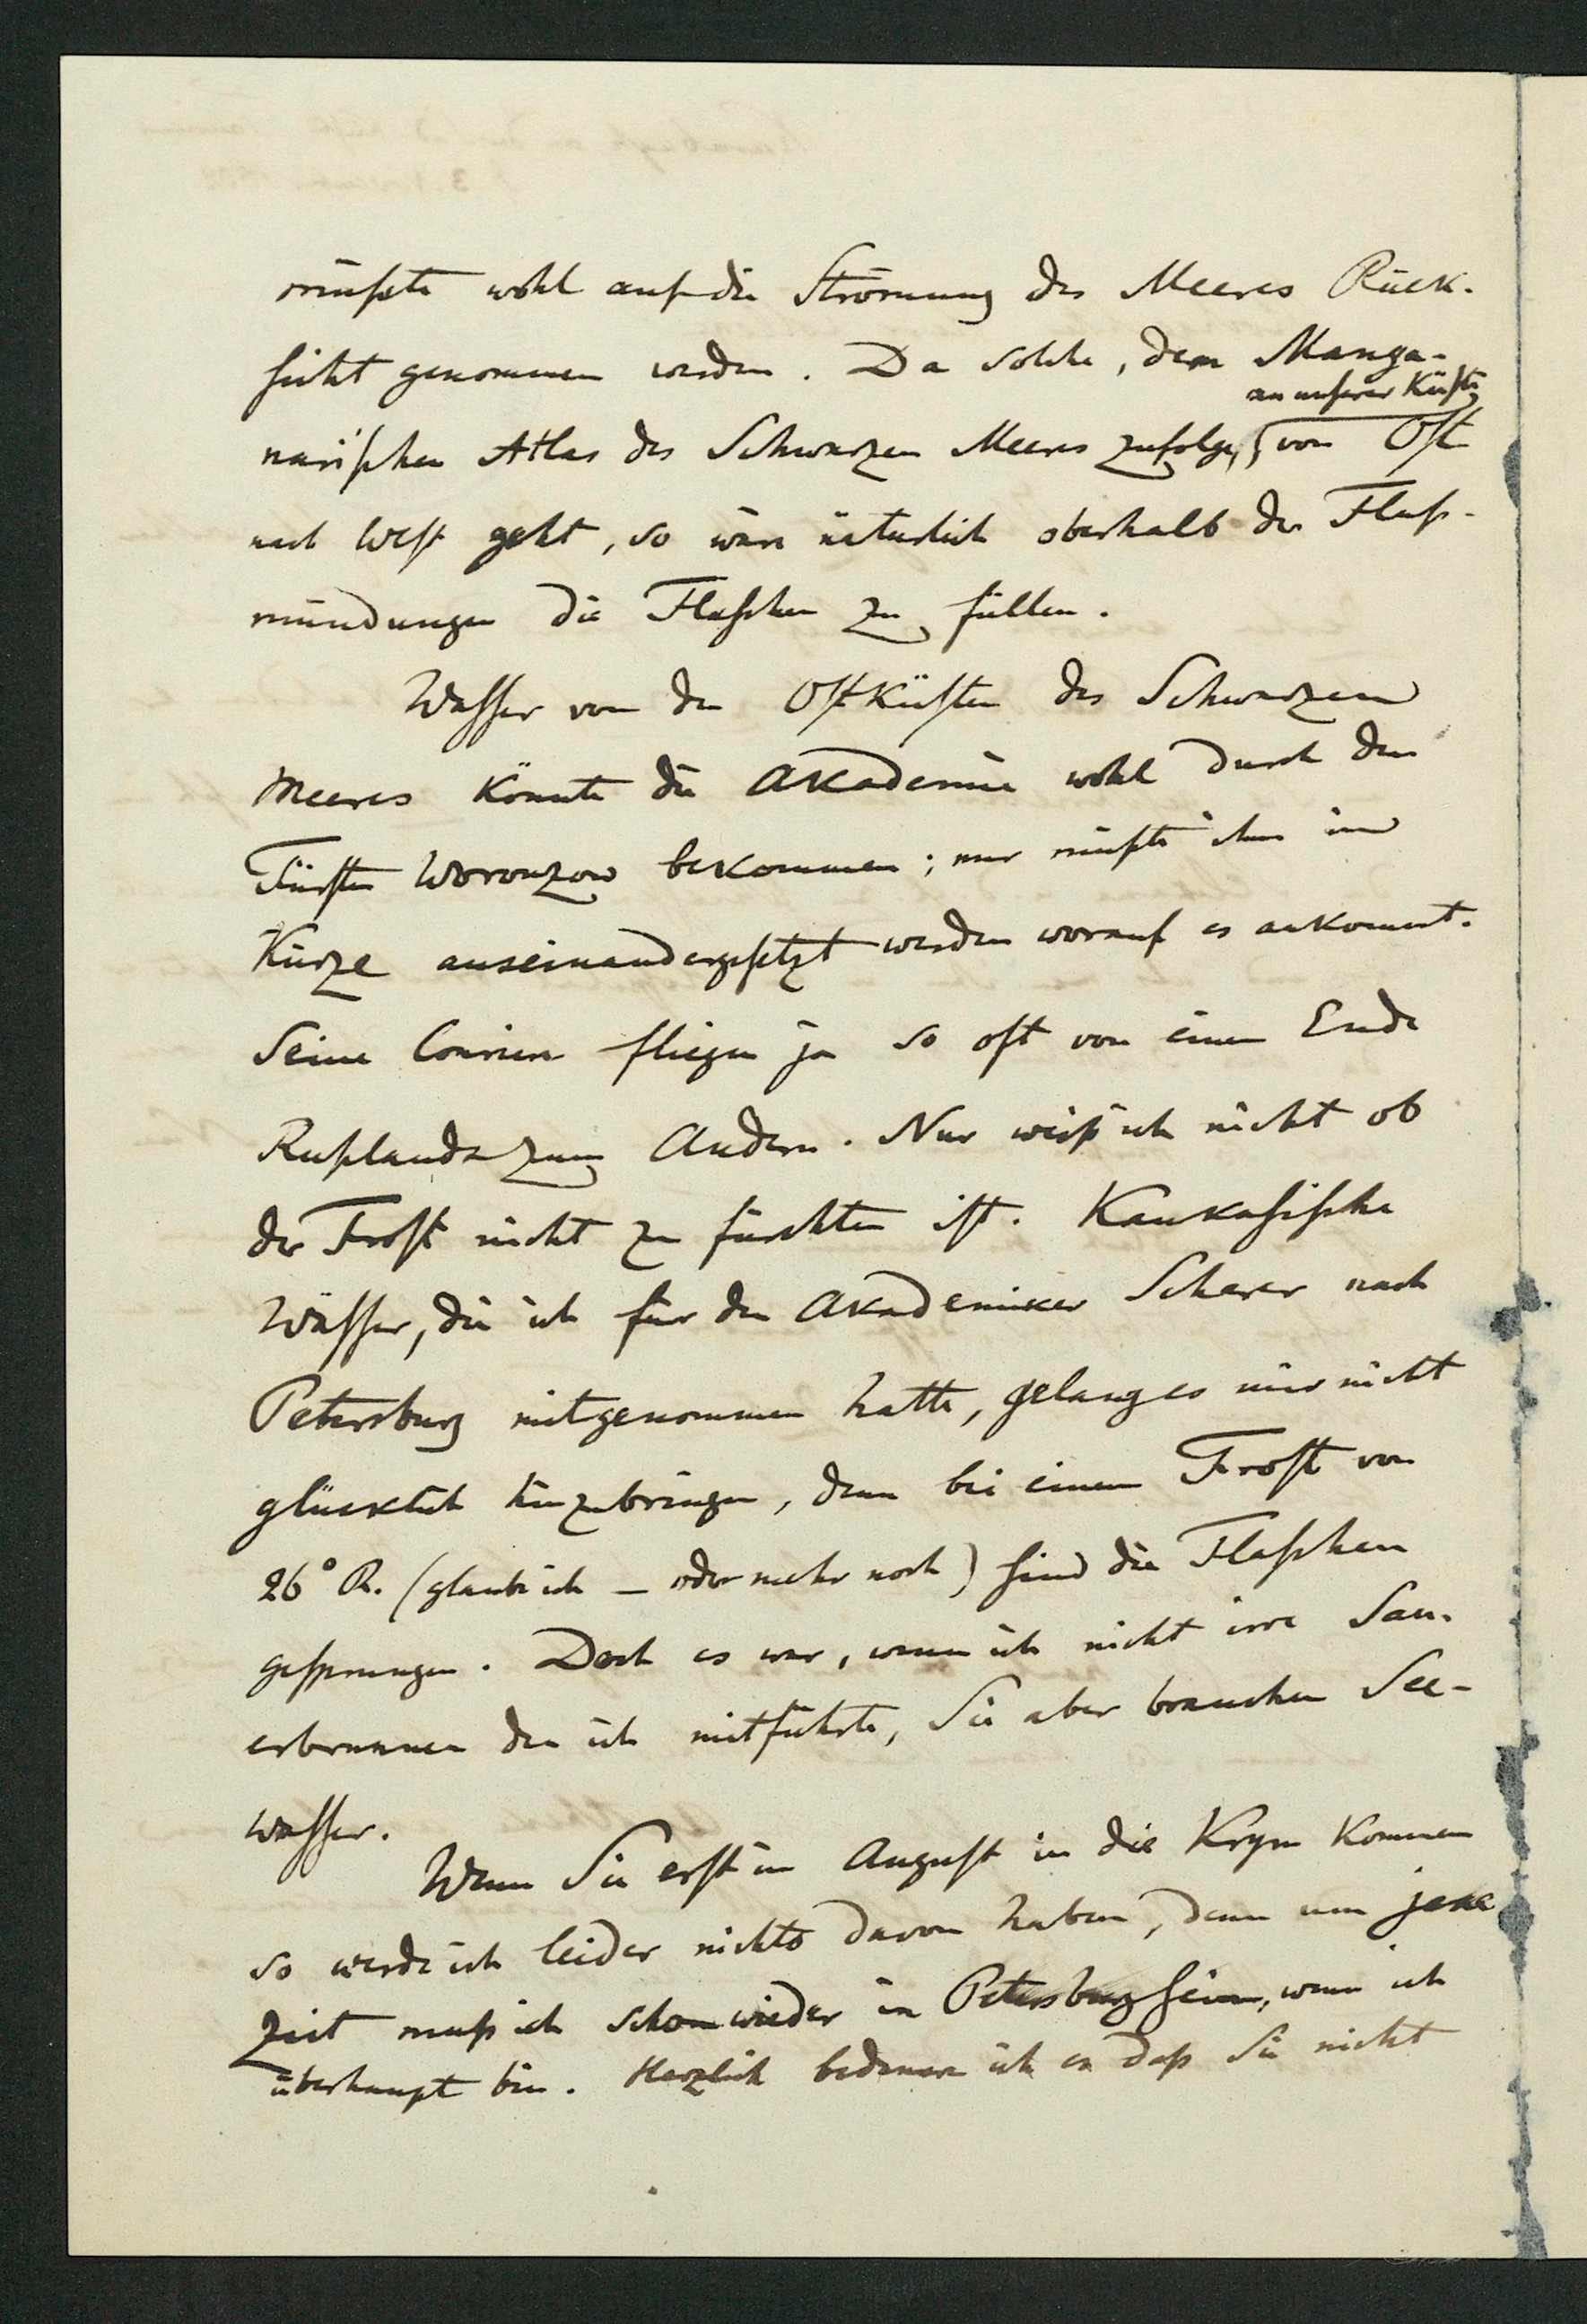 müßte wohl auf die Strömung des Meeres Rück-
sicht genommen werden. Da solche, dem Manga-
an unserer Küste
narischen Atlas des Schwarzen Meeres zufolge, von Ost
nach West geht, so wäre natürlich oberhalb der Fluß-
mündungen die Flaschen zu füllen.
Wasser von den OstKüsten des Schwarzen
Meeres könnte die Akademie wohl durch den
Fürsten Woronzow bekommen; nur müßte ihm in
Kürze auseinandergesetzt werden worauf es ankommt.
Seine Couriere fliegen ja so oft von einem Ende
Rußlands zum Andern. Nur weiß ich nicht ob
der Frost nicht zu fürchten ist. Kaukasische
Wässer, die ich für den Akademiker Scherer nach
Petersburg mitgenommen hatte, gelang es mir nicht
glücklich hinzubringen, denn bei einem Frost von
26° R. (glaube ich – oder mehr noch) sind die Flaschen
gesprungen. Doch es war, wenn ich nicht irre Sau-
erbrunnen den ich mitführte, Sie aber brauchen See-
wasser.
Wenn Sie erst im August in die Krym kommen
so werde ich leider nichts davon haben, denn um jene
Zeit muß ich schon wieder in Petersburg sein, wenn ich
überhaupt bin. Herzlich bedauere ich es daß Sie nicht